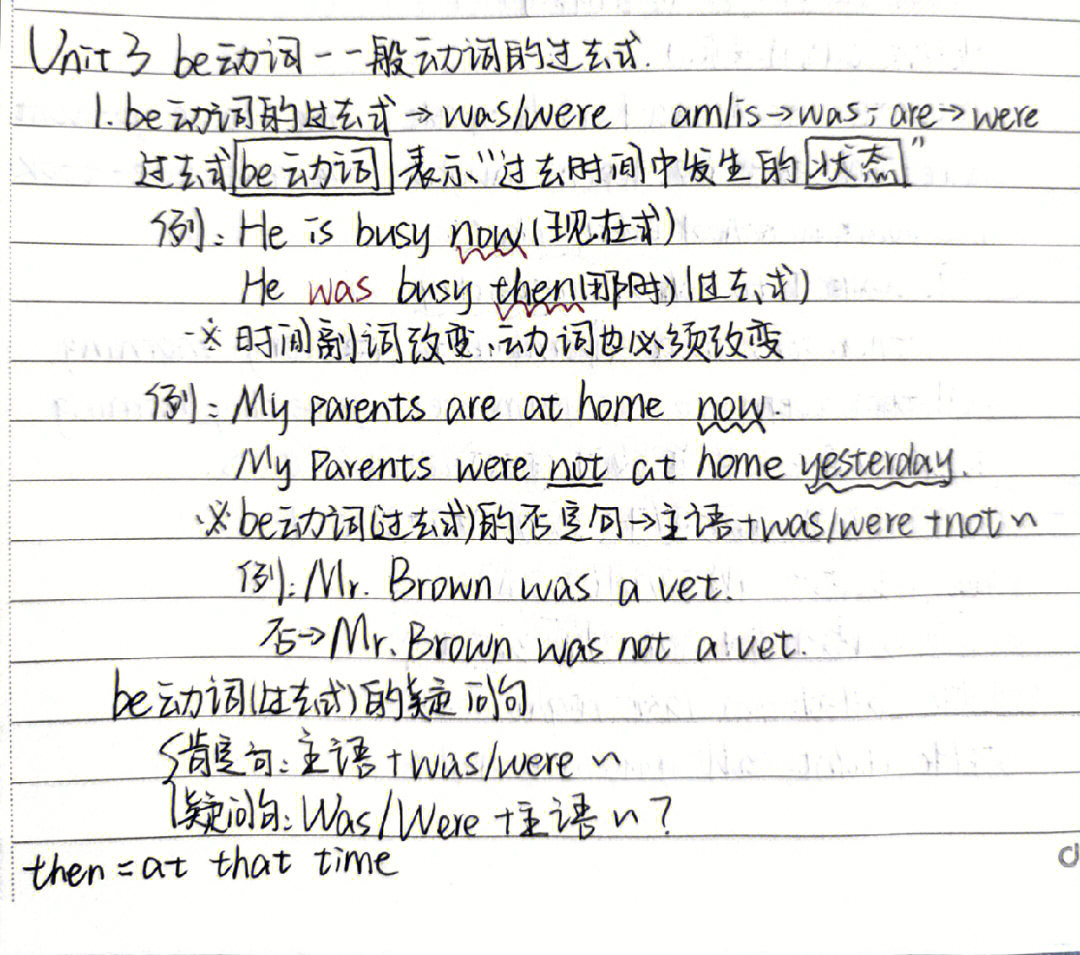 Unit 3 be动词－一般动词的过去式.
1. be动词的过去式→was/were am/is→was; are→were
过去式be动词表示“过去时间中发生的状态”
例: He is busy now(现在式)
He was busy then(那时)(过去式)
※时间副词改变、动词也必须改变
例: My parents are at home now.
My Parents were not at home yesterday.
※be动词(过去式)的否定句→主语+was/were+not~
例: Mr. Brown was a vet.
否→Mr. Brown was not a vet.
be动词(过去式)的疑问句
肯定句: 主语+was/were ~
疑问句: Was/Were +主语~?
then = at that time